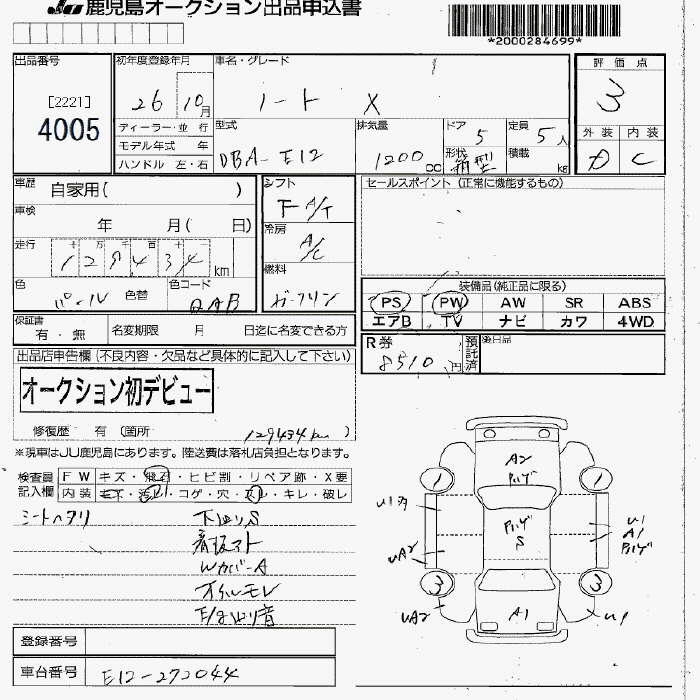 JU 鹿児島オークション出品申込書
*2000284699*
出品番号
[2221]
4005
初年度登録年月
26 10月
車名・グレード
ノート X
評価点
3
外装 内装
D C
ディーラー・並行
モデル年式 年
ハンドル 左・右
型式
DBA-E12
排気量
1200cc
ドア
5
形状
箱型
定員
5人
積載
kg
車歴
自家用( )
車検
年 月( 日)
走行
十 万 千 百 十 一
129434 km
色
パール
色替
色コード
QAB
シフト
F A/T
冷房
A/C
燃料
ガソリン
セールスポイント (正常に機能するもの)
装備品(純正品に限る)
PS PW AW SR ABS
エアB TV ナビ カワ 4WD
保証書
有・無
名変期限 月 日迄に名変できる方
R券
8510円
預託済
後日品
出品店申告欄 (不良内容・欠品など具体的に記入して下さい)
オークション初デビュー
修復歴 有 (箇所 129434km )
※現車はJU鹿児島にあります。陸送費は落札店負担となります。
検査員記入欄
FW キズ・飛石・ヒビ割・リペア跡・X要
内装 コゲ・穴・キレ・破レ
シートヘタリ
下回りS
看板アト
Wカバ-A
オイルモレ
E/g回り音
A2
ハゲ
1 1
ハゲ
S
U1
U1
A1
ハゲ
UA2
3 3
UA2
A1
U1
登録番号
車台番号 E12-272044